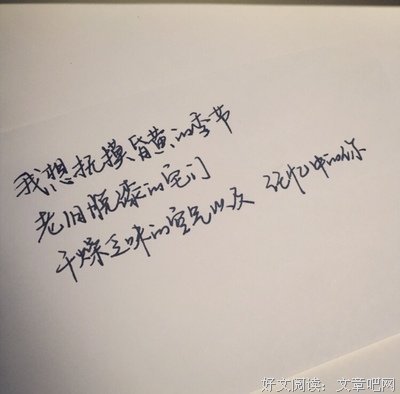 我想抚摸昏黄的季节
老旧脱漆的宅门
干燥乏味的空气以及 记忆中的你
好文阅读：文章吧网